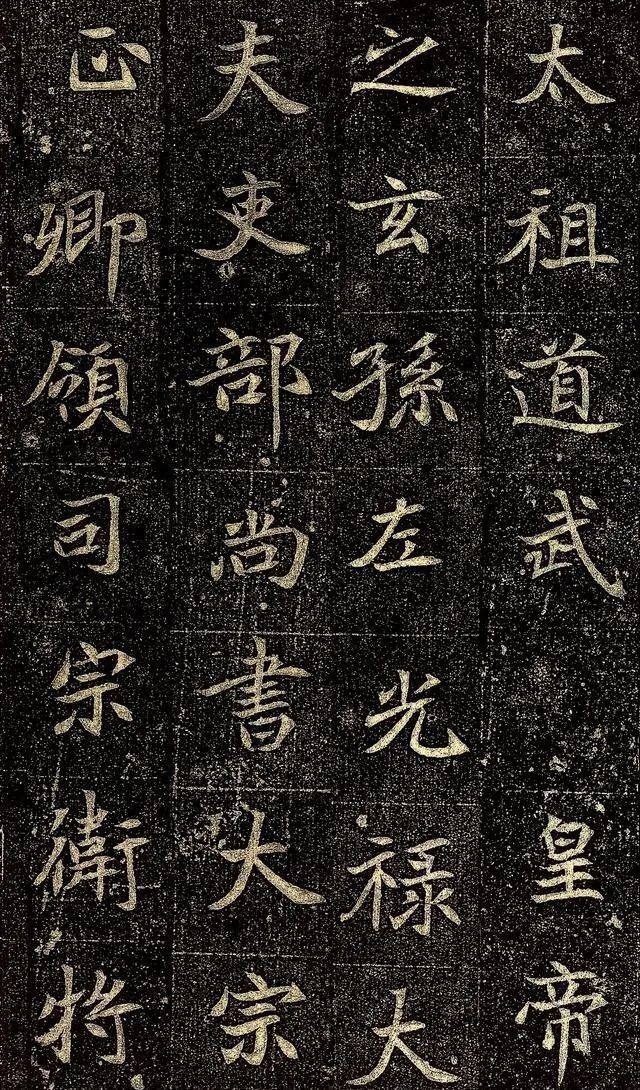 太祖道武皇帝
之玄孫左光祿大
夫吏部尚書大宗
正卿領司宗衛將